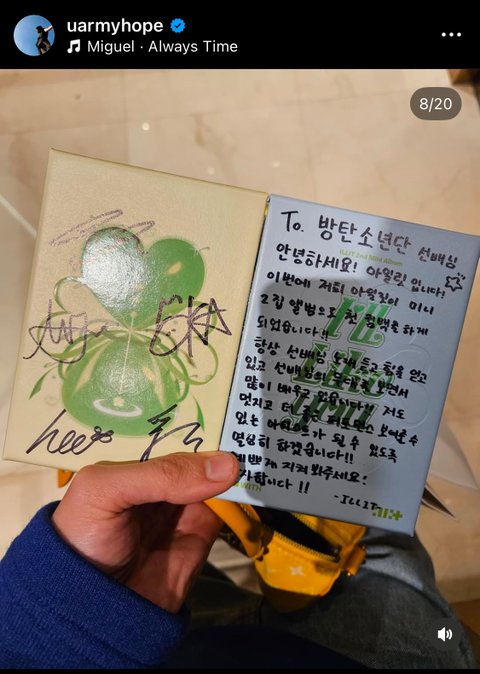 uarmyhope
Miguel · Always Time
8/20
To. 방탄소년단 선배님
ILLIT 2nd Mini Album
안녕하세요! 아일릿 입니다!
이번에 저희 아일릿이 미니
2집 앨범으로 첫 컴백을 하게
되었습니다!!
항상 선배님 노래 듣고 힘을 얻고
있고 선배님의 무대를 보면서
많이 배우고 있습니다!! 저도
멋지고 더 좋은 퍼포먼스 보여줄 수
있는 아이릿가 될 수 있도록
열심히 하겠습니다!!
예쁘게 지켜 봐주세요!
감사합니다!!
-ILLIT
WITH